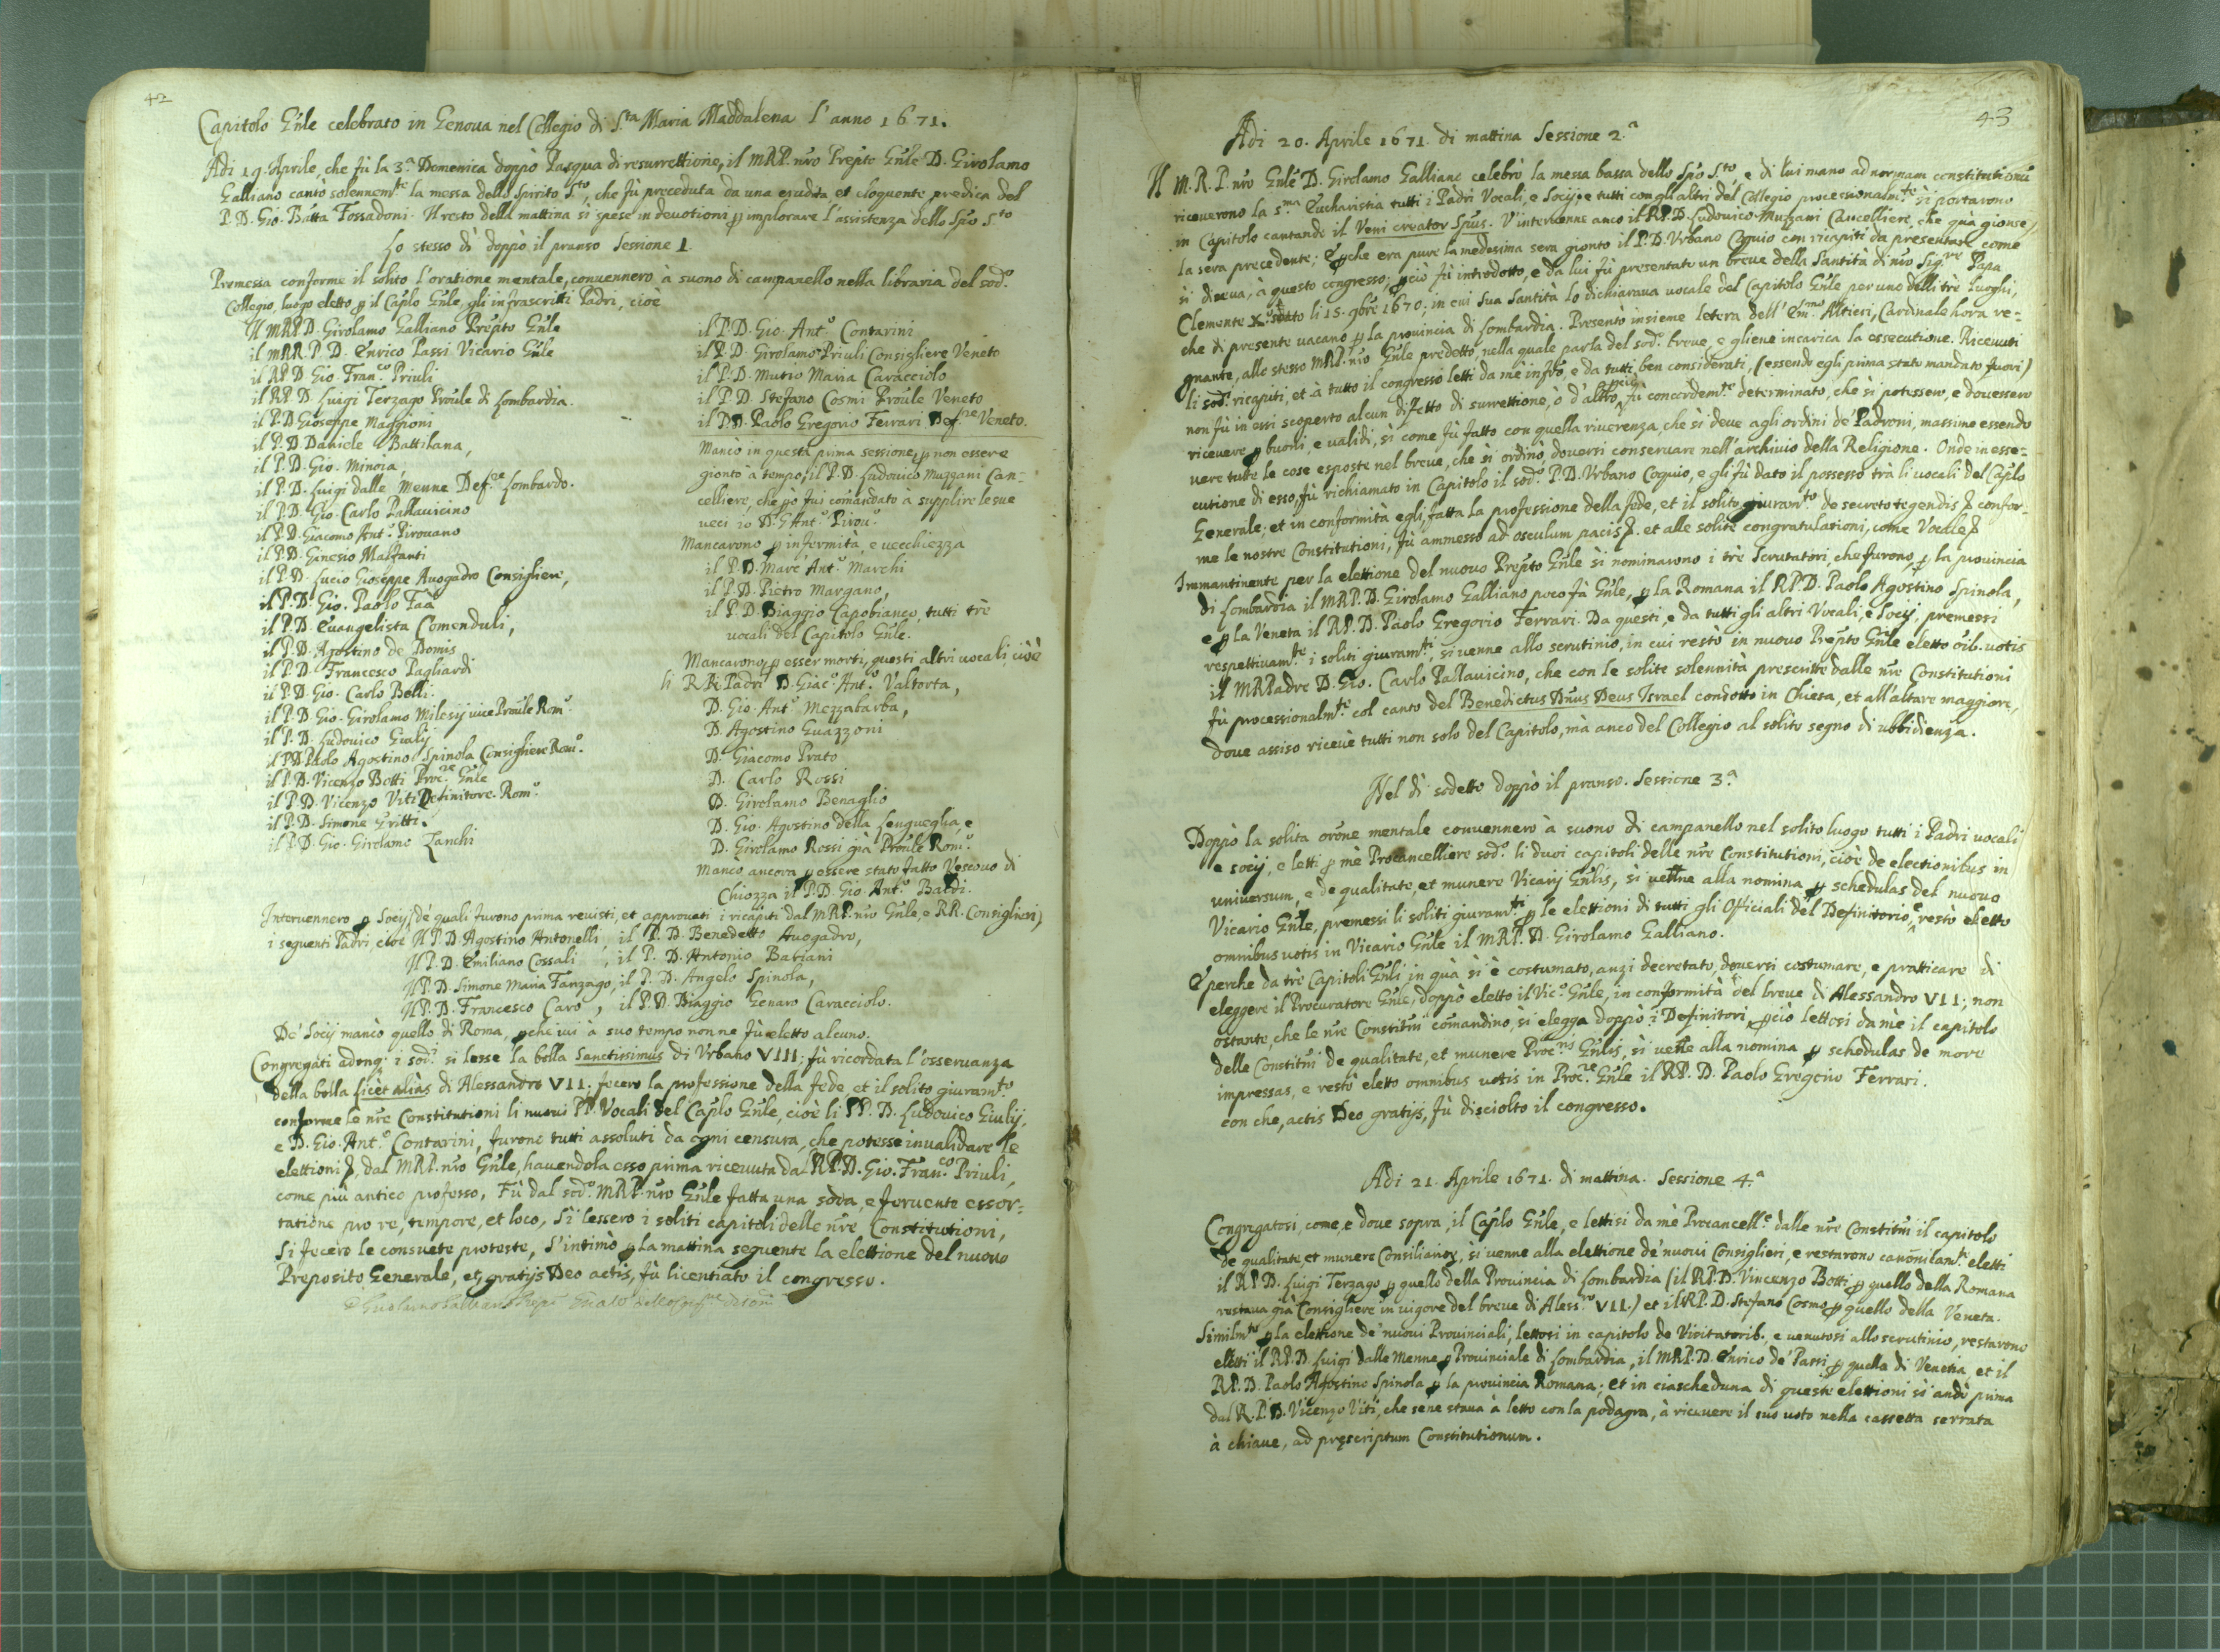 42
Capitolo Gñle celebrato in Genoua nel Collegio di S.ta Maria Maddalena l'anno 1671.
Adi 19. Aprile, che fù la 3.a Domenica doppò Pasqua di resurrettione, il MRP. nro Prepto Gñle D. Girolamo
Galliano cantò solennem.te la messa dello Spirito S.to, che fù preceduta da una erudita et eloquente predica del
P. D. Gio. Batta Fossadoni. Il resto della mattina si spese in deuotioni p implorare l'assistenza dello Spto S.to
Lo stesso dì doppò il pranso Sessione 1.
Premessa conforme il solito l'oratione mentale, conuennero à suono di campanello nella libraria del sod.o
Collegio, luogo eletto p il Caplo Gñle, gli infrascritti Padri, cioè
Il MRP.D. Girolamo Galliano Prepto Gñle
il MRR. P. D. Enrico Passi Vicario Gñle
il RP. D. Gio. Fran.co Priuli
il RP. D. Luigi Terzago Proule di Lombardia.
il P. D. Gioseppe Maggioni
il P. D. Daniele Battilana,
il P. D. Gio. Minoia,
il P. D. Luigi dalle Menne Def.re Lombardo.
il P. D. Gio. Carlo Pallauicino
il P. D. Giacomo Ant.o Pirouano
il P. D. Ginesio Malfanti
il P. D. Lucio Gioseppe Auogadro Consigliere,
il P. D. Gio. Paolo Faà
il P. D. Euangelista Comenduli,
il P. D. Agostino de Domis
il P. D. Francesco Pagliardi
il P. D. Gio. Carlo Belli.
il P. D. Gio. Girolamo Milesij vice Proule Rom.o
il P. D. Ludouico Giulij
il P. D. Paolo Agostino Spinola Consigliere Rom.o
il P. D. Vicenzo Botti Proc.re Gñle
il P. D. Vicenzo Viti Definitore Rom.o
il P. D. Simone Gritti.
il P. D. Gio. Girolamo Zanchi
il P. D. Gio. Ant.o Contarini
il P. D. Girolamo Priuli Consigliere Veneto
il P. D. Mutio Maria Caracciolo
il P. D. Stefano Cosmi Proule Veneto
il P. D. Paolo Gregorio Ferrari Def.re Veneto.
Mancò in questa prima sessione, p non essere
gionto à tempo, il P. D. Ludouico Muzzani Can-
celliere, che pò fui comandato à supplire le sue
ueci io D. G. Ant.o Pirou.o
Mancarono p infermità, e uecchiezza
il P. D. Marc Ant.o Marchi
il P. D. Pietro Margano,
il P. D. Biaggio Capobianco, tutti trè
uocali del Capitolo Gñle.
Mancarono, p esser morti, questi altri uocali cioè
li RR. Padri D. Giac.o Ant.o Valtorta,
D. Gio. Ant.o Mezzabarba,
D. Agostino Guazzoni
D. Giacomo Prato
D. Carlo Rossi
D. Girolamo Benaglio
D. Gio. Agostino della Lengueglia, e
D. Girolamo Rossi già Proule Rom.o
Mancò ancora p essere stato fatto Vescouo di
Chiozza il P. D. Gio. Ant.o Baldi.
Interuennero p Socij (de quali furono prima reuisti, et approuati i ricapiti dal MRP. nro Gñle, e RR. Consiglieri)
i seguenti Padri, cioè Il P. D. Agostino Antonelli, il P. D. Benedetto Auogadro,
Il P. D. Emiliano Cossali, il P. D. Antonio Bariani
Il P. D. Simone Maria Fanzago, il P. D. Angelo Spinola,
Il P. D. Francesco Caro, il P. D. Biaggio Genaro Caracciolo.
De' Socij mancò quello di Roma, pche iui à suo tempo non ne fù eletto alcuno.
Congregati adonq. i sod.i si lesse la bolla Sanctissimus di Vrbano VIII; fù ricordata l'osseruanza
della bolla Licèt aliàs di Alessandro VII; fecero la professione della fede et il solito giuram.to
conforme le nre Constitutioni li nuoui PP. Vocali del Caplo Gñle, cioè li PP. D. Ludouico Giulij,
e D. Gio. Ant.o Contarini, furono tutti assoluti da ogni censura, che potesse inualidare le
elettioni, dal MRP. nro Gñle, hauendola esso prima riceuuta dal RP. D. Gio. Fran.co Priuli,
come più antico professo. Fù dal sod.o MRP. nro Gñle fatta una soda, e feruente essor-
tatione pro re, tempore, et loco, Si lessero i soliti capitoli delle nre Constitutioni,
si fecero le consuete proteste, S'intimò p la mattina seguente la elettione del nuouo
Preposito Generale, et gratijs Deo actis, fù licentiato il congresso.
43
Adi 20. Aprile 1671. di mattina Sessione 2.a
Il M. R. P. nro Gñle D. Girolamo Galliano celebrò la messa bassa dello Spto S.to, e di lui mano ad normam constitutionũ
riceuerono la S.ma Eucharistia tutti i Padri Vocali, e Socij, e tutti con gli altri del Collegio processionalm.te si portarono
in Capitolo cantando il Veni creator Spùs. V'interuenne anco il RP. D. Ludouico Muzzani Cancelliere, che quà gionse
la sera precedente; E pche era pure la medesima sera gionto il P. D. Vrbano Coquio con ricapiti da presentare come
si diceua, à questo congresso; pciò fù introdotto, e da lui fù presentato un breue della Santità di nro Sig.re Papa
Clemente X.o dato li 15. 9bre 1670; in cui sua Santità lo dichiaraua vocale del Capitolo Gñle per uno delli trè luoghi,
che di presente uacano p la prouincia di Lombardia. Presentò insieme letera dell'Em.mo Altieri, Cardinale hora re-
gnante, allo stesso MRP. nro Gñle predetto, nella quale parla del sod.o breue, e gliene incarica la essecutione. Riceuuti
li sod.i ricapiti, et à tutto il congresso letti da mè infrò, e da tutti ben considerati, (essendo egli prima stato mandato fuori)
non fù in essi scoperto alcun difetto di surrettione, ò d'altro, pciò fù concordem.te determinato, che si potessero, e douessero
riceuere p buoni, e ualidi, si come fù fatto con quella riuerenza, che si deue agli ordini de Padroni, massime essendo
uere tutte le cose esposte nel breue, che si ordinò douersi conseruare nell'archiuio della Religione. Onde in esse-
cutione di esso, fù richiamato in Capitolo il sod.o P. D. Vrbano Coquio, e gli fù dato il possesso trà li uocali del Caplo
Generale; et in conformità egli, fatta la professione della fede, et il solito giuram.to de secreto tegendis confor-
me le nostre Constitutioni, fù ammesso ad osculum pacis. et alle solite congratulationi, come Vocale
Immantinente per la elettione del nuouo Prepto Gñle si nominarono i trè Scrutatori, che furono, p la prouincia
di Lombardia il MRP. D. Girolamo Galliano poco fà Gñle, p la Romana il RP. D. Paolo Agostino Spinola,
e p la Veneta il RP. D. Paolo Gregorio Ferrari. Da questi, e da tutti gli altri Vocali, e Socij, premessi
respettiuam.te i soliti giuram.ti, si uenne allo scrutinio, in cui restò in nuouo Prepto Gñle eletto oib. uotis
il MRPadre D. Gio. Carlo Pallauicino, che con le solite solennità prescritte dalle nre Constitutioni
fù processionalm.te col canto del Benedictus Dñus Deus Israel condotto in Chiesa, et all'altare maggiore,
doue assiso riceuè tutti non solo del Capitolo, mà anco del Collegio al solito segno di ubbidienza.
Nel dì sodetto doppò il pranso. Sessione 3.a
Doppò la solita orone mentale conuennero à suono di campanello nel solito luogo tutti i Padri uocali
e socij, e letti p mè Procancelliere sod.o li duoi capitoli delle nre Constitutioni, cioè de electionibus in
uniuersum, e de qualitate, et munere Vicarij Gñlis, si uenne alla nomina p schedulas del nuouo
Vicario Gñle, premessi li soliti giuram.ti p le elettioni di tutti gli Officiali del Definitorio, e restò eletto
omnibus uotis in Vicario Gñle il MRP. D. Girolamo Galliano.
E perche da trè Capitoli Gñli in quà si è costumato, anzi decretato, douersi costumare, e pratticare di
eleggere il Procuratore Gñle, doppò eletto il Vic.o Gñle, in conformità del breue di Alessandro VII; non
ostante, che le nre Constitũi comandino, si elegga doppò i Definitori, pciò lettosi da mè il capitolo
delle Constitũi de qualitate, et munere Proc.ris Gñlis, si uenne alla nomina p schedulas de more
impressas, e restò eletto omnibus uotis in Proc.re Gñle il RP. D. Paolo Gregorio Ferrari.
con che, actis Deo gratijs, fù disciolto il congresso.
Adi 21. Aprile 1671. di mattina. Sessione 4.a
Congregatosi, come, e doue sopra, il Caplo Gñle, e lettisi da mè Procancell.e dalle nre Constitũi il capitolo
de qualitate, et munere Consiliarior, si uenne alla elettione de' nuoui Consiglieri, e restarono eletti
il RP. D. Luigi Terzago p quello della Prouincia di Lombardia (il RP. D. Vincenzo Botti p quello della Romana
restaua già Consigliere in uigore del breue di Aless.ro VII.) et il RP. D. Stefano Cosmo p quello della Veneta.
Similm.te p la elettione de' nuoui Prouinciali, lettosi in capitolo de Visitatorib. e uenutosi allo scrutinio, restarono
eletti il RP. D. Luigi dalle Menne p Prouinciale di Lombardia, il MRP. D. Enrico de' Passi p quella di Venetia, et il
RP. D. Paolo Agostino Spinola p la prouincia Romana; et in ciascheduna di queste elettioni si andò prima
dal R. P. D. Vicenzo Viti, che sene staua à letto con la podagra, à riceuere il suo uoto nella cassetta serrata
à chiaue, ad pręscriptum Constitutionum.